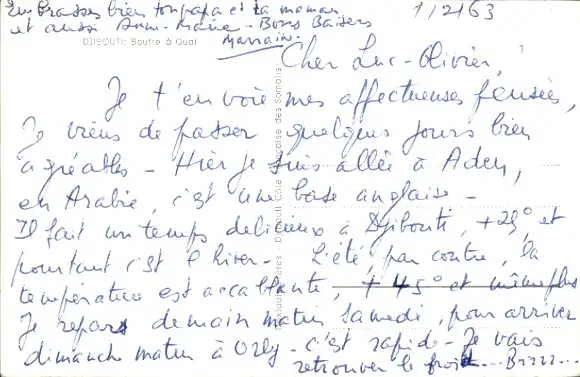 Embrasses bien ton papa et ta maman
et aussi Anne-Marie - Bons Baisers
Marraine -
1/2/63
DJIBOUTI: Boutre à Quai
Cher Luc-Olivier,
Je t'envoie mes affectueuses pensées,
Je viens de passer quelques jours bien
agréables - Hier je suis allée à Aden,
en Arabie, c'est une base anglaise -
Il fait un temps délicieux à Djibouti, +25° et
pourtant c'est l'hiver - L'été, par contre, la
température est accablante, + 45° et même plus
Je repars demain matin samedi, pour arriver
dimanche matin à Orly - c'est rapide - Je vais
retrouver le froid... Brrrr...
Djibouti Côte Française des Somalis